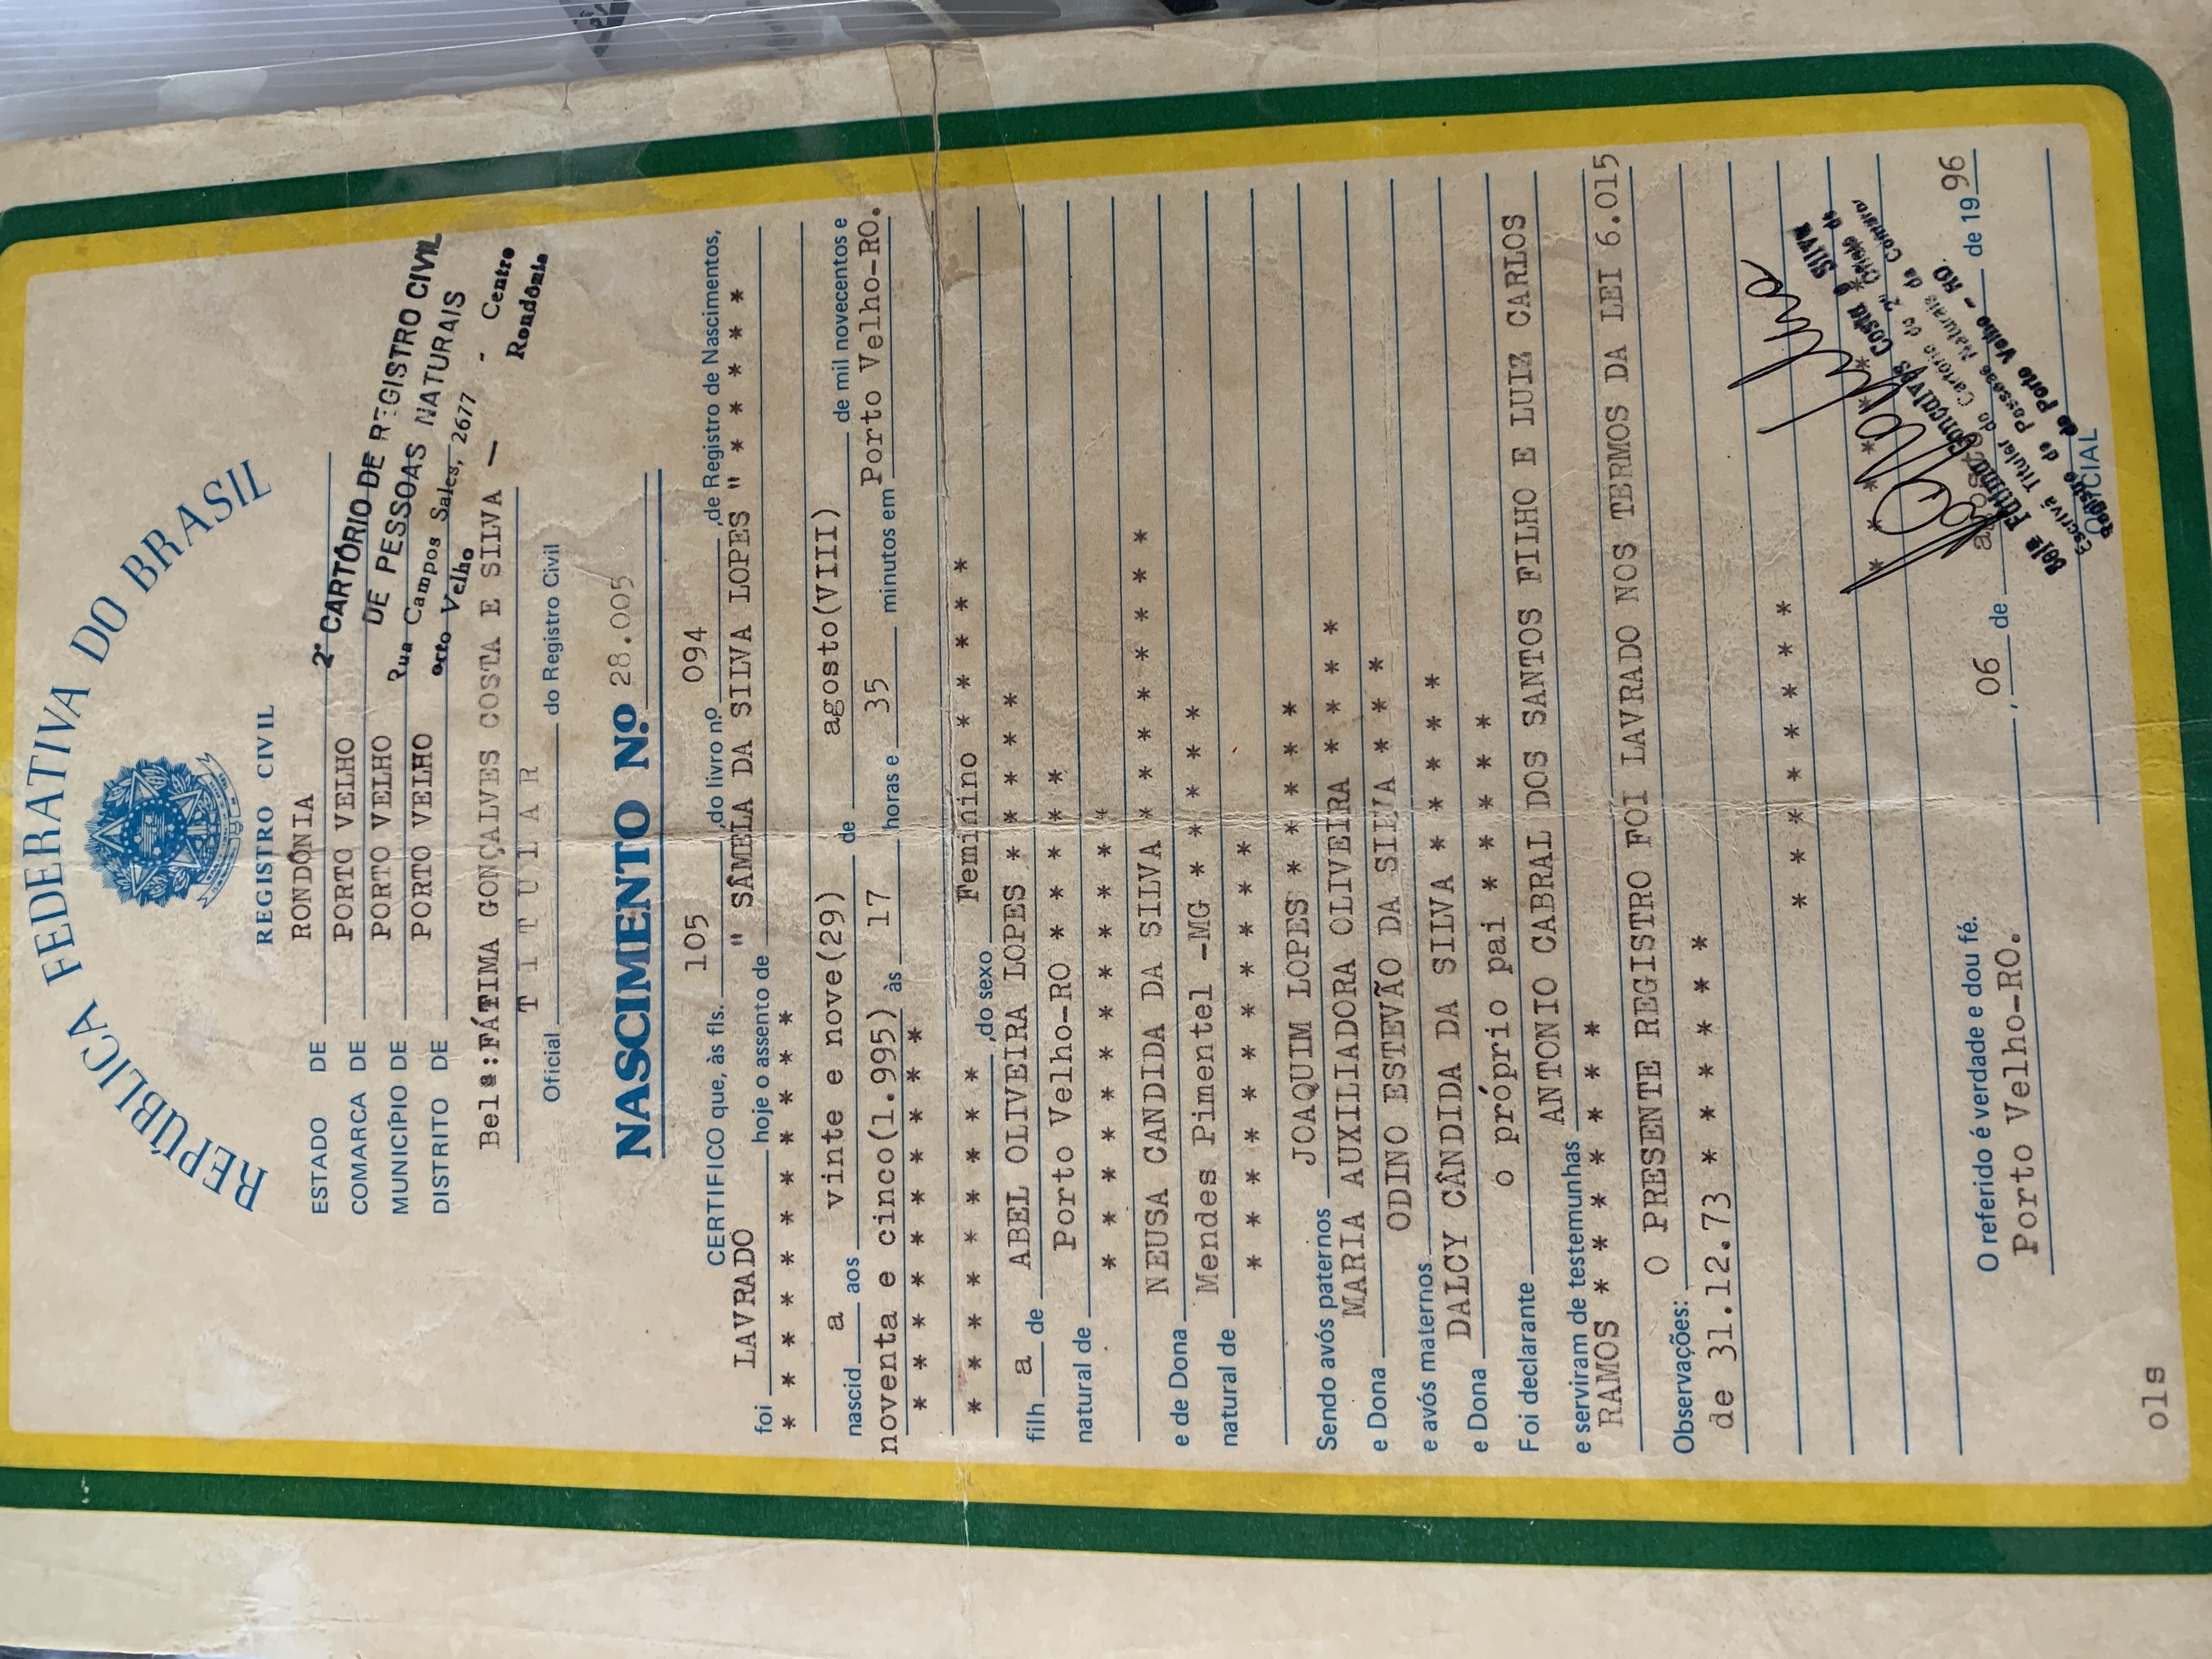 REPÚBLICA FEDERATIVA DO BRASIL
REGISTRO CIVIL
ESTADO DE RONDÔNIA
COMARCA DE PORTO VELHO
MUNICÍPIO DE PORTO VELHO
DISTRITO DE PORTO VELHO
2º CARTÓRIO DE REGISTRO CIVIL
DE PESSOAS NATURAIS
Rua Campos Sales, 2677 - Centro
orto Velho — Rondônia
Belª:FÁTIMA GONÇALVES COSTA E SILVA
T I T U L A R
Oficial do Registro Civil
NASCIMENTO N.º 28.005
CERTIFICO que, às fls. 105 ,do livro nº 094 ,de Registro de Nascimentos,
foi LAVRADO hoje o assento de " SÂMELA DA SILVA LOPES " * * * * * *
* * * * * * * * * * *
nascid a aos vinte e nove(29) de agosto(VIII) de mil novecentos e
noventa e cinco(1.995) às 17 horas e 35 minutos em Porto Velho-RO.
* * * * * * * * * *
* * * * * * * * * ,do sexo Feminino * * * * *
filh a de ABEL OLIVEIRA LOPES * * * * *
natural de Porto Velho-RO * * * * *
* * * * * * * * * * * *
e de Dona NEUSA CANDIDA DA SILVA * * * * * * * *
natural de Mendes Pimentel -MG * * * * *
* * * * * * * * * * *
Sendo avós paternos JOAQUIM LOPES * * * * *
e Dona MARIA AUXILIADORA OLIVEIRA * * * *
e avós maternos ODINO ESTEVÃO DA SILVA * * * *
e Dona DALCY CÂNDIDA DA SILVA * * * * * *
Foi declarante o próprio pai * * * * *
e serviram de testemunhas ANTONIO CABRAL DOS SANTOS FILHO E LUIZ CARLOS
RAMOS * * * * * * *
Observações: O PRESENTE REGISTRO FOI LAVRADO NOS TERMOS DA LEI 6.015
de 31.12.73 * * * * * *
* * * * * * * *
* * * * *
O referido é verdade e dou fé.
Porto Velho-RO. , 06 de agosto de 19 96
Belª Fátima Gonçalves Costa e SILVA
Escrivã Titular do Cartorio do 2º Oficio de
Registro de Pessoas Naturais da Comarca
de Porto Velho - RO.
OFICIAL
ols